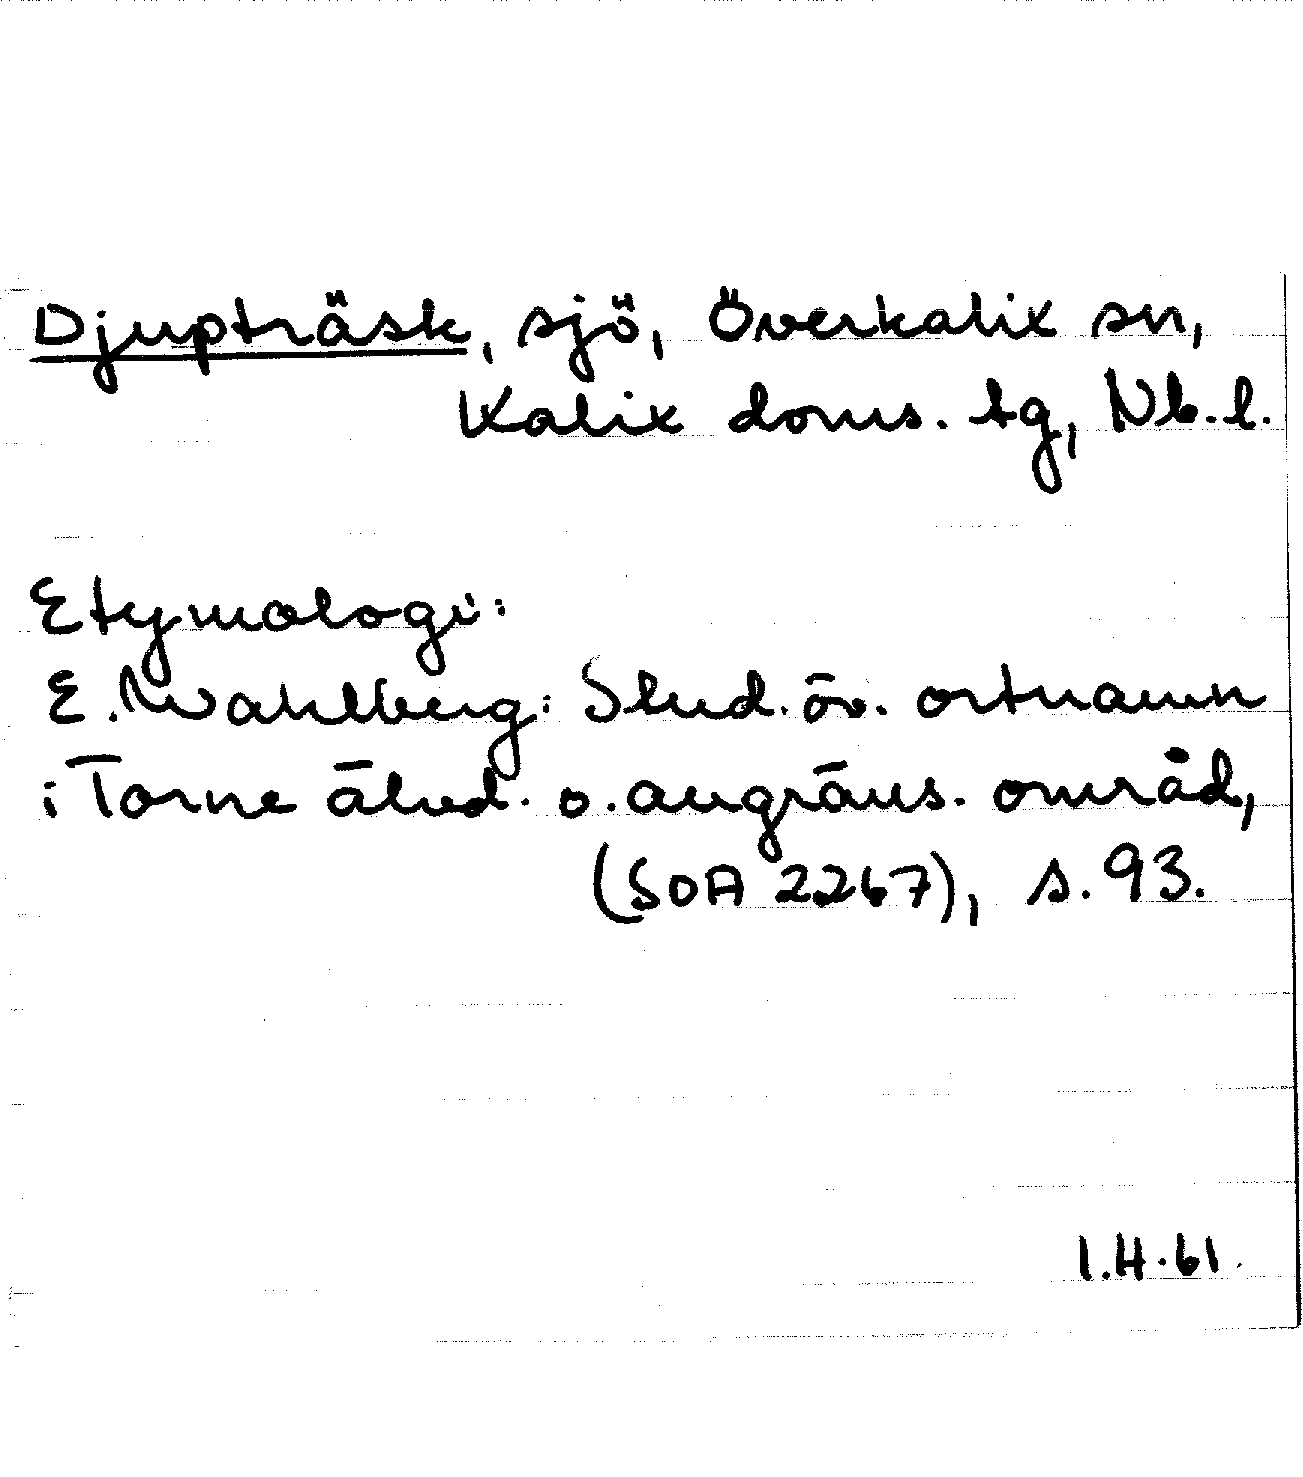 Djupträsk, sjö, Överkalix sn,
Kalix doms. tg, Nb. l.
Etymologi:
E. Wahlberg: Stud. öv. ortnamn
i Torne älvd. o. angräns. områd,
(SOA 2267), s. 93.
I.H. 61.